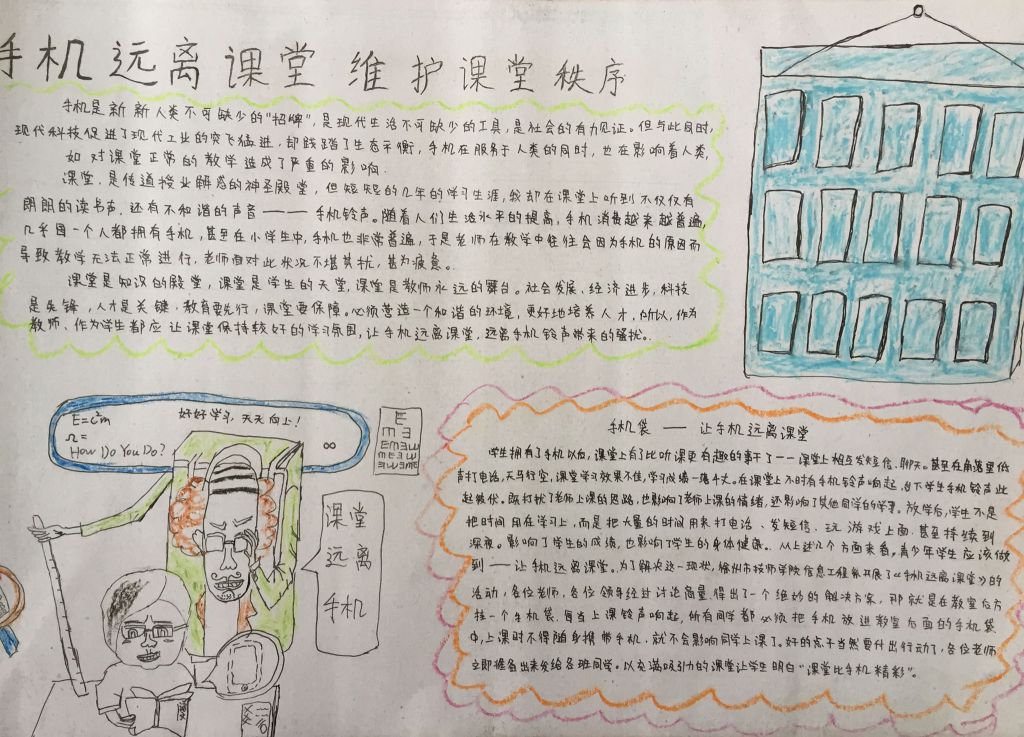 手机远离课堂 维护课堂秩序
手机是新新人类不可缺少的“招牌”，是现代生活不可缺少的工具，是社会的有力见证。但与此同时，
现代科技促进了现代工业的突飞猛进，却践踏了生态平衡，手机在服务于人类的同时，也在影响着人类，
如对课堂正常的教学造成了严重的影响。
课堂，是传道授业解惑的神圣殿堂，但短短的几年的学习生涯，我却在课堂上听到不仅仅有
朗朗的读书声，还有不和谐的声音———手机铃声。随着人们生活水平的提高，手机消费越来越普遍，
几乎每一个人都拥有手机，甚至在小学生中，手机也非常普遍，于是老师在教学中往往会因为手机的原因而
导致教学无法正常进行，老师面对此状况不堪其扰，甚为疲惫。
课堂是知识的殿堂，课堂是学生的天堂，课堂是教师永远的舞台。社会发展、经济进步，科技
是先锋，人才是关键，教育要先行，课堂要保障。必须营造一个和谐的环境，更好地培养人才，所以，作为
教师、作为学生都应让课堂保持较好的学习氛围，让手机远离课堂，远离手机铃声带来的骚扰。
E=c²m
Ω=
How Do You Do?
好好学习，天天向上！
∞
E
m E
课堂
远离
手机
手机袋——让手机远离课堂
学生拥有了手机以后，课堂上有了比听课更有趣的事了——课堂上相互发短信、聊天。甚至在角落里低
声打电话，天马行空，课堂学习效果不佳，学习成绩一落千丈。在课堂上不时有手机铃声响起，台下学生手机铃声此
起彼伏。既打扰了老师上课的思路，也影响了老师上课的情绪，还影响了其他同学的学习。放学后，学生不是
把时间用在学习上，而是把大量的时间用来打电话、发短信、玩游戏上面，甚至持续到
深夜。影响了学生的成绩，也影响了学生的身体健康。从上述几个方面来看，青少年学生应该做
到——让手机远离课堂。为了解决这一现状，徐州市技师学院信息工程系开展了《手机远离课堂》的
活动，各位老师，各位领导经过讨论商量，得出了一个绝妙的解决方案，那就是在教室后方
挂一个手机袋，每当上课铃声响起，所有同学都必须把手机放进教室后面的手机袋
中，上课时不得随身携带手机，就不会影响同学上课了。好的点子当然要付出行动了，各位老师
立即准备出来发给各班同学。以充满吸引力的课堂让学生明白“课堂比手机精彩”。